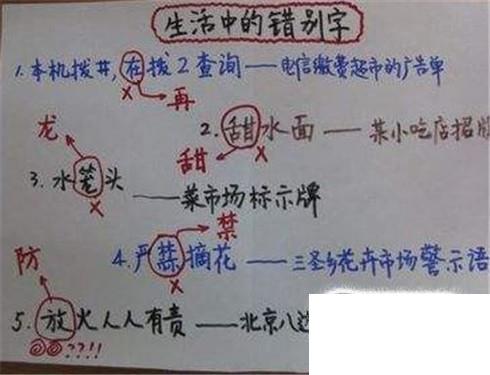 生活中的错别字
1.本机拨井,在拨2查询——电信缴费超市的广告单
× 再
龙
2.水面——某小吃店招牌
甜 ×
3.水笼头——菜市场标示牌
×
禁
4.严摘花——三圣乡花卉市场警示语
防 ×
5.放火人人有责——北京八
??!!